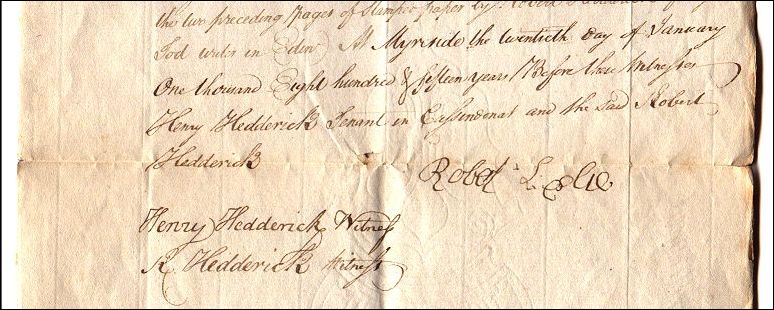 the two preceding pages of Stampt paper by Robert
At Myreside the twentieth Day of January
One thousand Eight hundred & fifteen years Before these Witnesses
Henry Hedderick Tenant in and the said Robert
Hedderick
Robert Leslie
Henry Hedderick Witness
R Hedderick Witness